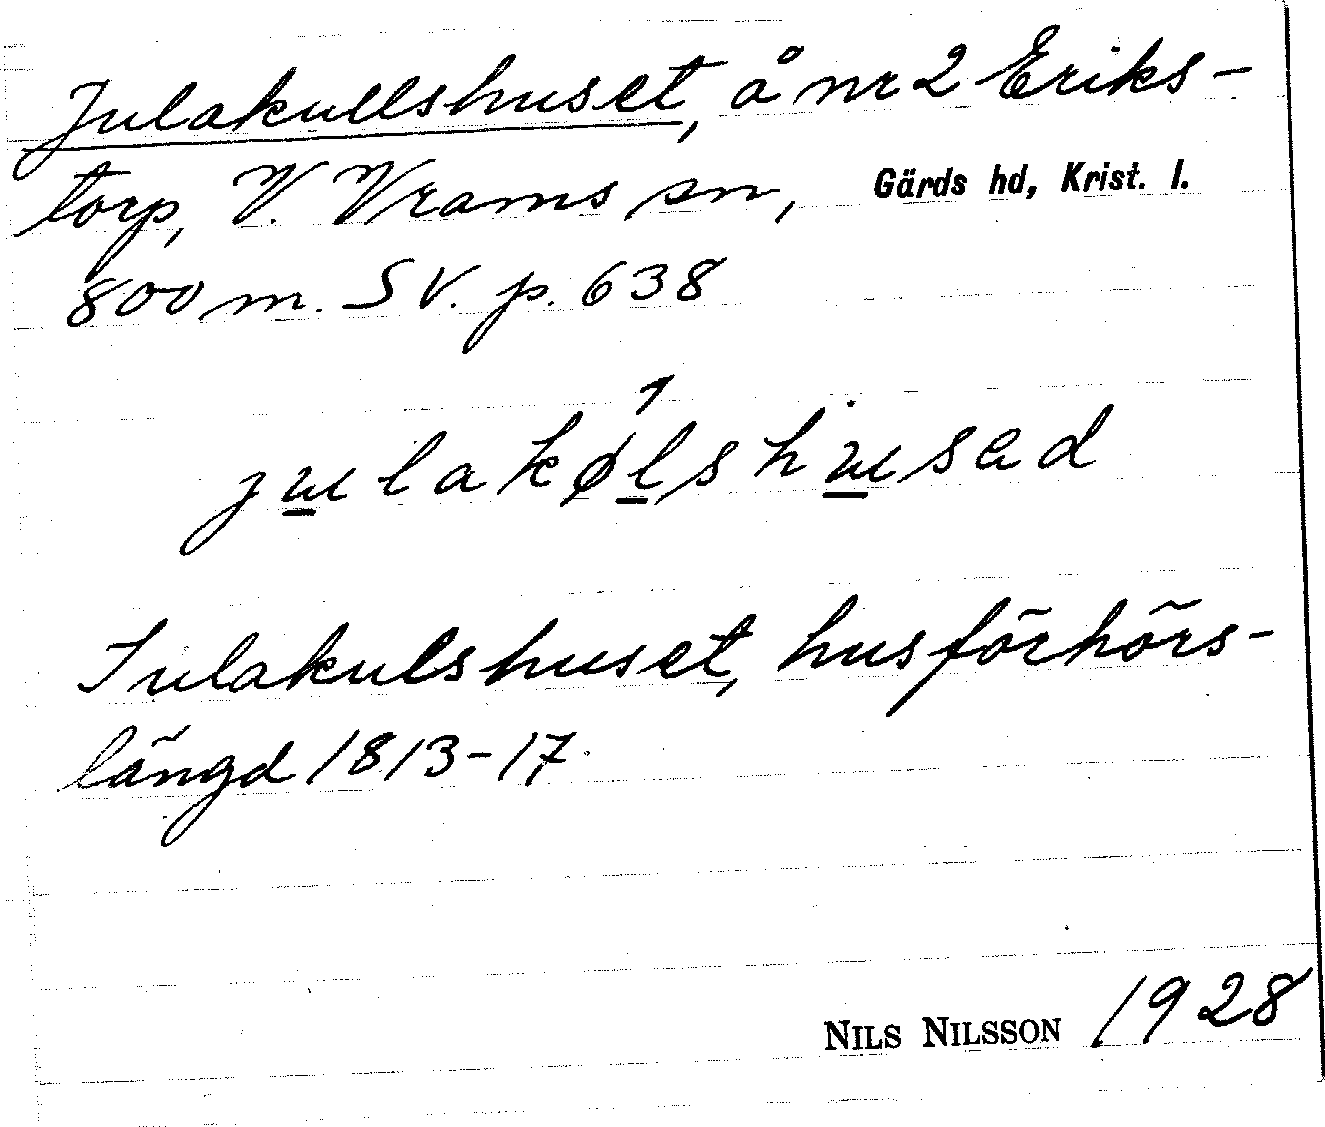 Julakullshuset, å nr 2 Eriks-
torp, V. Vrams sn, Gärds hd, Krist. l.
800 m. SV. p. 638
julakølshusad
Julakulshuset, husförhörs-
längd 1813-17.
NILS NILSSON 1928